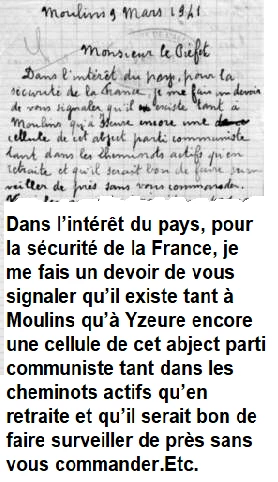 Moulins 9 Mars 1941
Monsieur le Préfet
Dans l'intérêt du pays, pour la
sécurité de la France, je me fais un devoir
de vous signaler qu'il existe tant à
Moulins qu'à Yzeure encore une
cellule de cet abject parti communiste
tant dans les cheminots actifs qu'en
retraite et qu'il serait bon de faire sur-
veiller de près sans vous commander.
Dans l'intérêt du pays, pour
la sécurité de la France, je
me fais un devoir de vous
signaler qu'il existe tant à
Moulins qu'à Yzeure encore
une cellule de cet abject parti
communiste tant dans les
cheminots actifs qu'en
retraite et qu'il serait bon de
faire surveiller de près sans
vous commander.Etc.